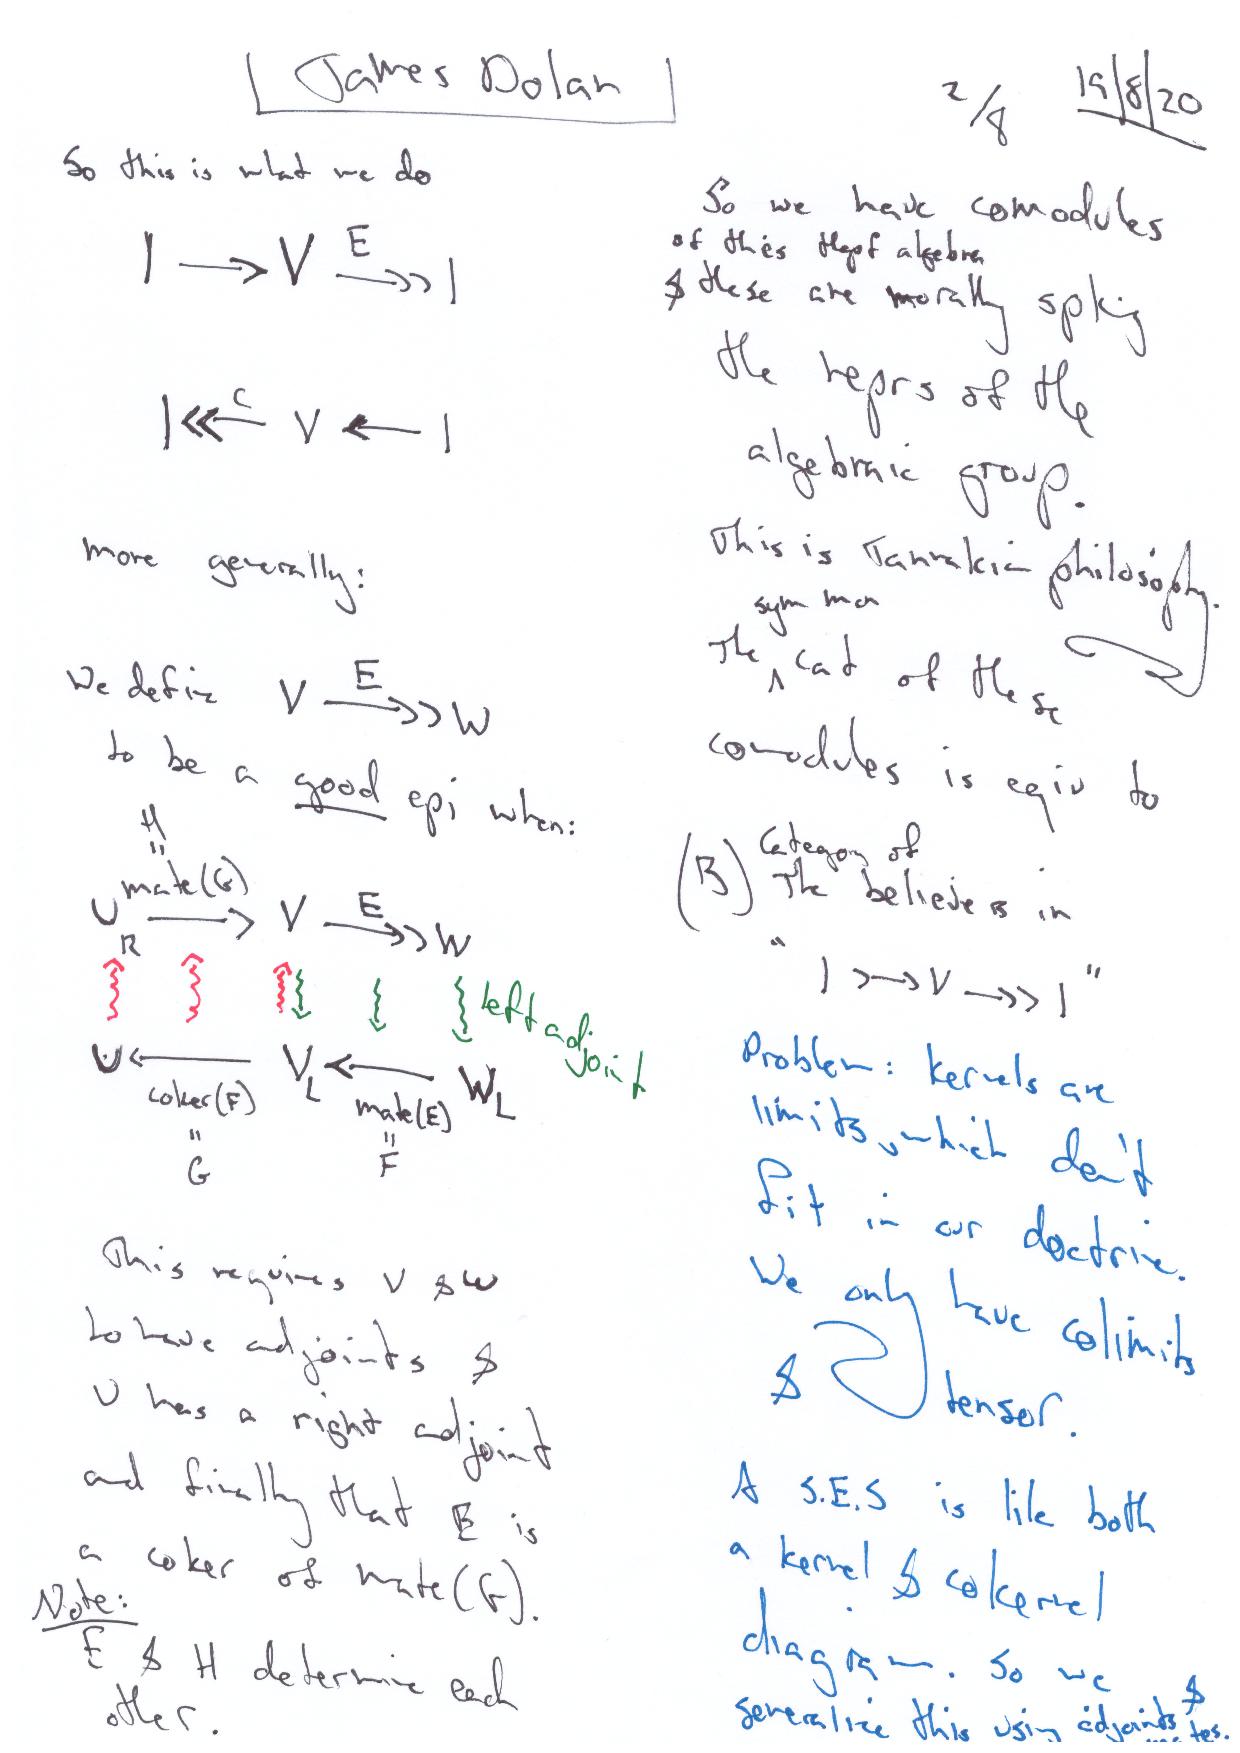 James Dolan
2/8 19/8/20
So this is what we do
I → V E ↠ I
I ↞ C V ← I
more generally:
We define V E ↠ W
to be a good epi when:
H
=
mate(G)
U_R → V E ↠ W
left adjoint
U ← V_L ← W_L
coker(F) mate(E)
= =
G F
This requires V & W
to have adjoints &
U has a right adjoint
and finally that E is
a coker of mate(G).
Note:
E & H determine each
other.
So we have comodules
of this Hopf algebra
& these are morally spkig
the reprs of the
algebraic group.
This is Tannakian philosophy.
sym mon
The ∧ cat of these
comodules is eqiv to
(B) Category of
The believers in
" I ↣ V ↠ I "
Problem: kernels are
limits, which don't
fit in our doctrine.
We only have colimits
& tensor.
A S.E.S is like both
a kernel & cokernel
diagram. So we
generalize this using adjoints &
mates.